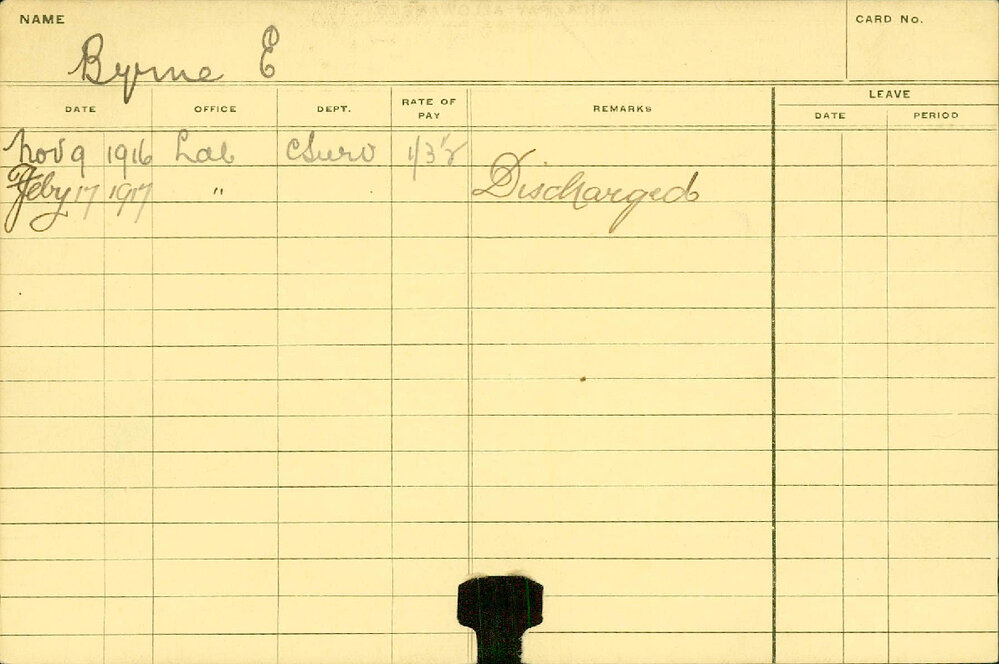 NAME
CARD No.
Byrne E
DATE OFFICE DEPT. RATE OF PAY REMARKS LEAVE
DATE PERIOD
Nov 9 1916 Lab CSurv
Feby 17 1917 " Discharged